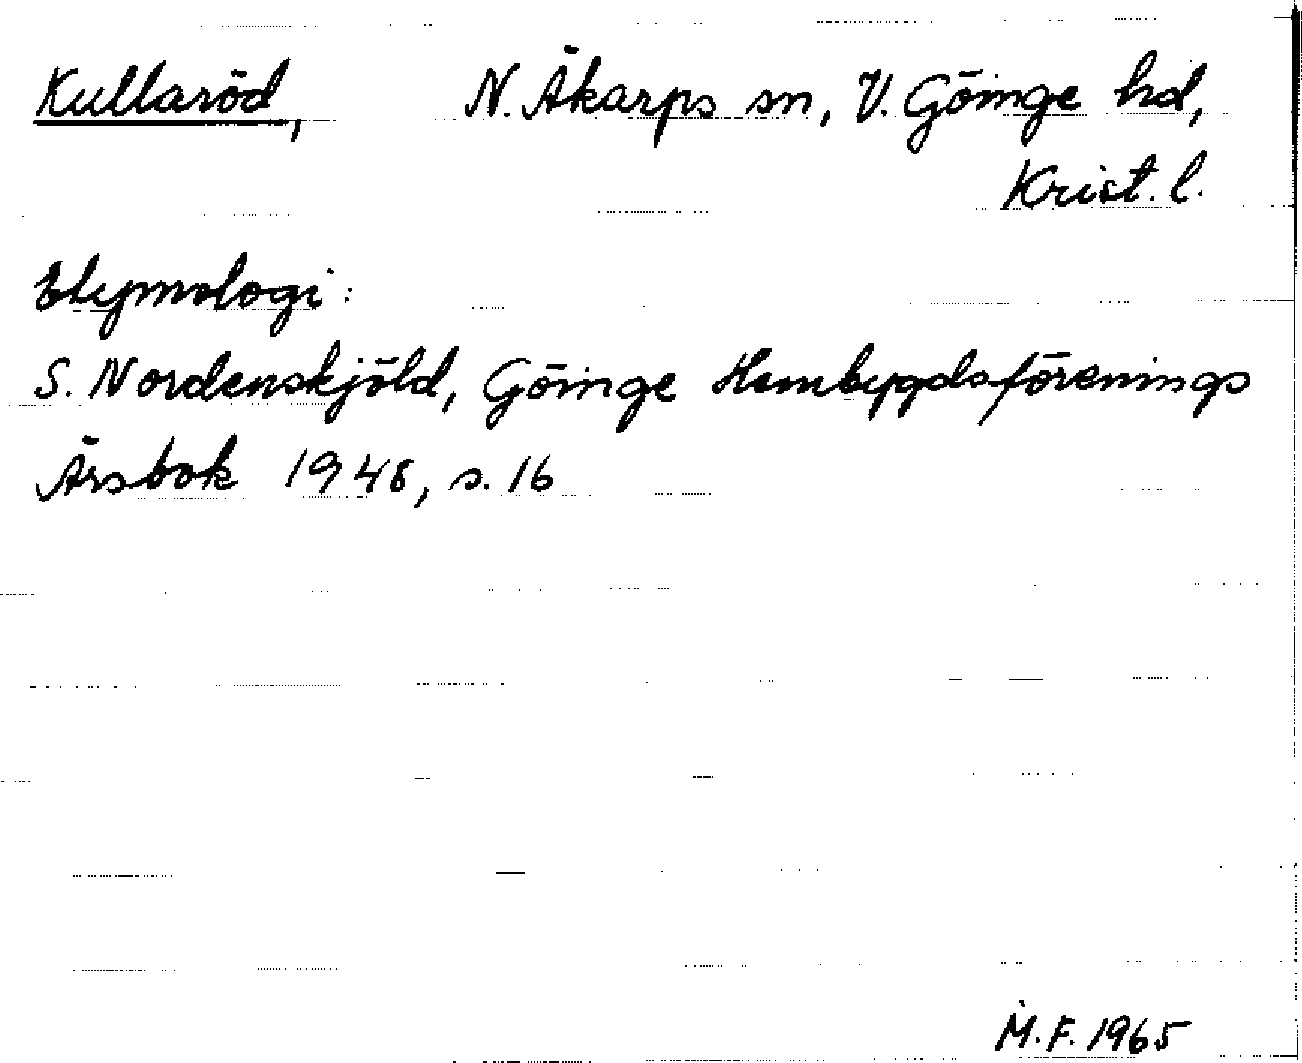 Kullaröd, N. Åkarps sn, V. Göinge hd,
Krist. l.
Etymologi:
S. Nordenskjöld, Göinge Hembygdsförenings
Årsbok 1948, s. 16
M.F. 1965